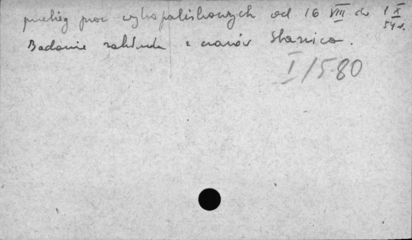 przebieg prac wykopaliskowych od 16 VIII do 1 X 54 r.
Badanie zakładu z czasów Staszica.
I/1580